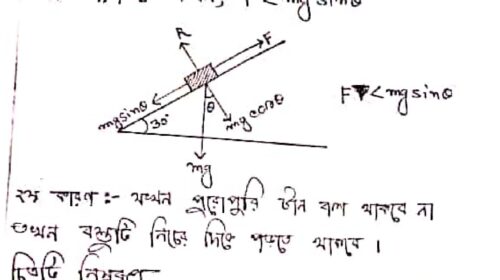 F < mg sinθ
R
F
mg sinθ
θ
30°
mg cosθ
F < mg sinθ
mg
২য় কারণ :- যখন পুরোপুরি টান বল থাকবে না
তখন বস্তুটি নিচের দিকে পড়তে থাকবে ।
চিত্রটি নিম্নরূপ